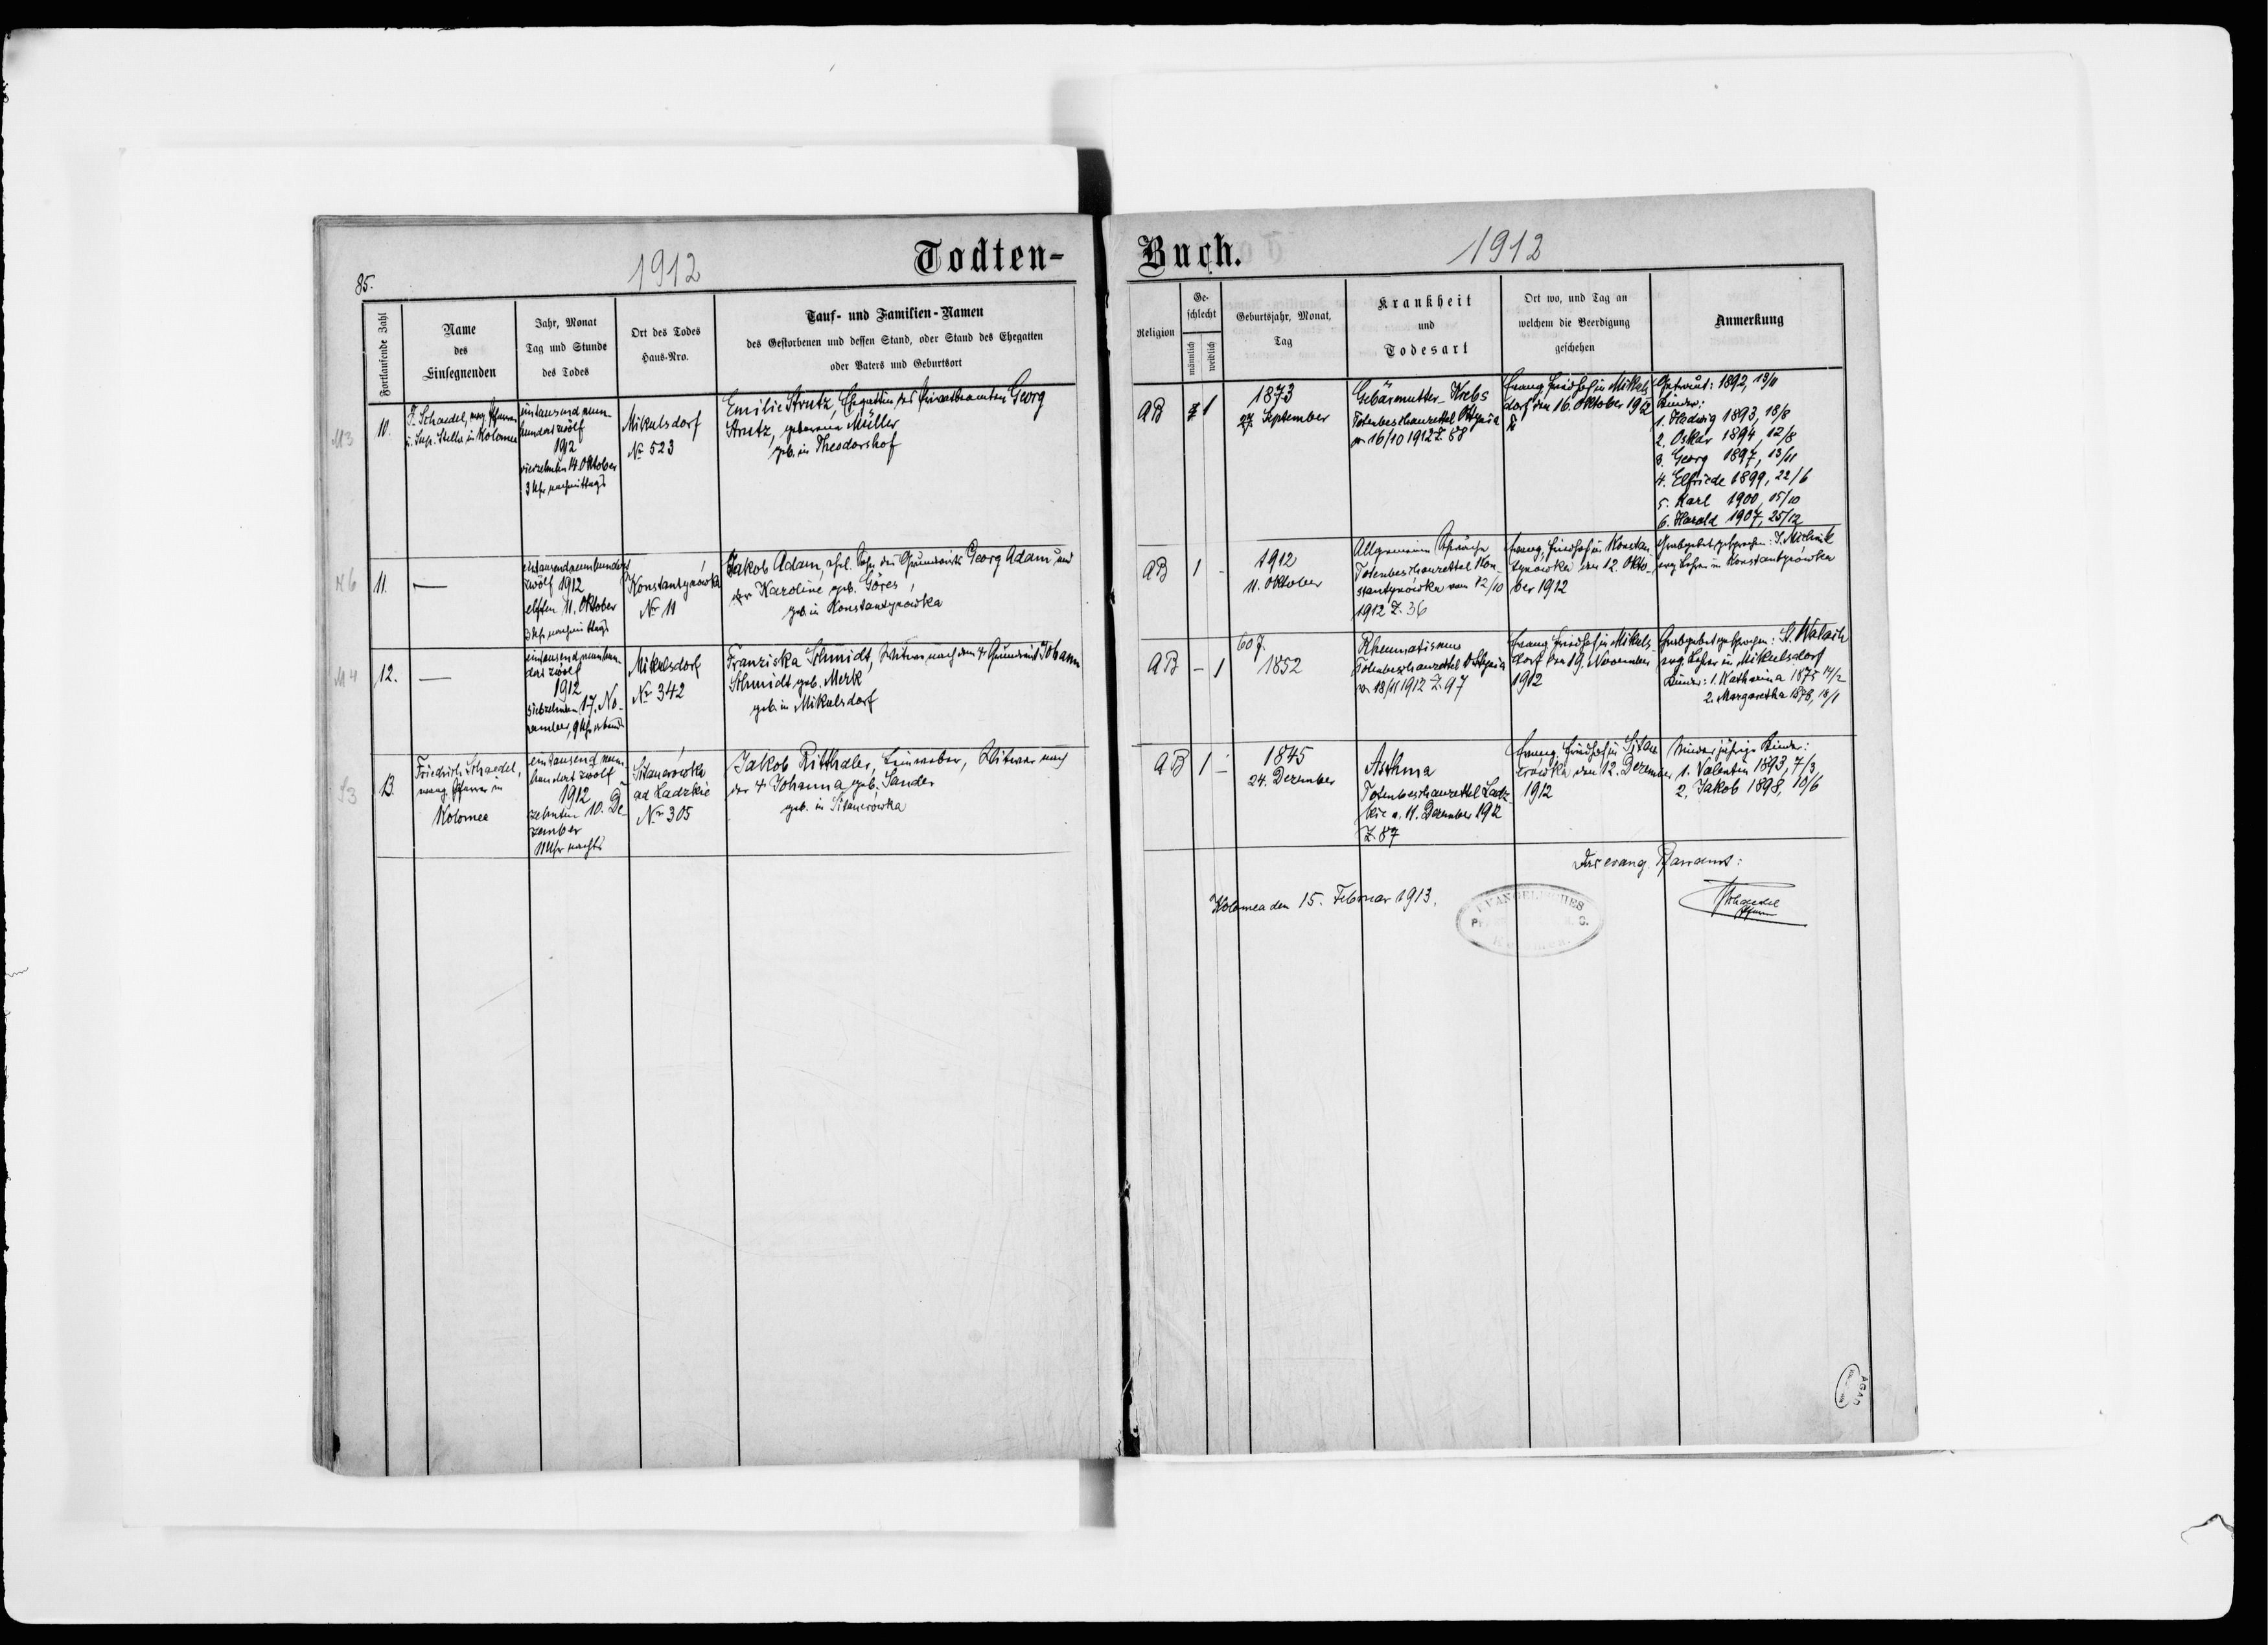 85.
1912
Todten-
Fortlaufende Zahl
Name
des
Einsegnenden
Jahr, Monat
Tag und Stunde
des Todes
Ort des Todes
Haus-Nro.
Tauf- und Familien-Namen
des Gestorbenen und dessen Stand, oder Stand des Ehegatten
oder Vaters und Geburtsort
M3
10.
F. Schaedel, evang. Pfarrer
i. Sup. Stellv. in Kolomea
eintausend neun-
hundert zwölf
1912
vierzehnten 14. Oktober
3 Uhr nachmittags
Mikulsdorf
Nr 523
Emilie Strutz, Ehegattin des Privatbeamten Georg
Strutz, geborene Müller
geb. in Theodorshof
K6
11.
—
eintausendneunhundert
zwölf 1912
elften 11. Oktober
3 Uhr nachmittags
Konstantynówka
Nr 11
Jakob Adam, ehel. Sohn des Grundwirts Georg Adam und
der Karoline geb. Göres
geb. in Konstantynówka
M4
12.
—
eintausend neunhun-
dert zwölf
1912
siebzehnten 17. No-
vember, 9 Uhr abends
Mikulsdorf
Nr 342
Franziska Schmidt, Witwe nach dem † Grundwirt Johann
Schmidt geb. Merk
geb. in Mikulsdorf
S3
13.
Friedrich Schaedel,
evang. Pfarrer in
Kolomea
eintausend neun-
hundert zwölf
1912
zehnten 10. De-
zember
11 Uhr nachts
Sitauerówka
ad Ladzkie
Nr 305
Jakob Ritthaler, Leinweber, Witwer nach
der † Johanna geb. Sander
geb. in Sitauerówka
Buch.
1912
Religion
Ge-
schlecht
männlich
weiblich
Geburtsjahr, Monat,
Tag
Krankheit
und
Todesart
Ort wo, und Tag an
welchem die Beerdigung
geschehen
Anmerkung
AB
1
1873
27. September
Gebärmutter-Krebs
Totenbeschauzettel Ottynia
v. 16/10 1912 Z. 88
Evang. Friedhof in Mikuls-
dorf den 16. Oktober 1912
Getraut: 1892, 13/11
Kinder:
1. Hedwig 1893, 18/8
2. Oskar 1894, 12/8
3. Georg 1897, 13/11
4. Elfriede 1899, 22/6
5. Karl 1900, 15/10
6. Harald 1907, 25/12
AB
1 -
1912
11. Oktober
Allgemeine Schwäche
Totenbeschauzettel Kon-
stantynówka vom 12/10
1912 Z. 36
Evang. Friedhof in Konstan-
tynówka den 12. Okto-
ber 1912
Grabgebet gesprochen: J. Michnik
evg. Lehrer in Konstantynówka
AB
- 1
60 J.
1852
Rheumatismus
Totenbeschauzettel Ottynia
v. 18/11 1912 Z. 97
Evang. Friedhof in Mikuls-
dorf den 19. November
1912
Grabgebet gesprochen: St. Walach
evg. Lehrer in Mikulsdorf
Kinder: 1. Katharina 1875 14/2
2. Margaretha 1878, 18/1
AB
1 -
1845
24. Dezember
Asthma
Totenbeschauzettel Ladz-
kie v. 11. Dezember 1912
Z. 87
Evang. Friedhof in Sitau-
erówka den 12. Dezember
1912
Minderjährige Kinder:
1. Valentin 1893, 7/3
2. Jakob 1898, 10/6
Das evang. Pfarramt:
Kolomea den 15. Februar 1913.
EVANGELISCHES
Schaedel
Pfarrer
AGAD